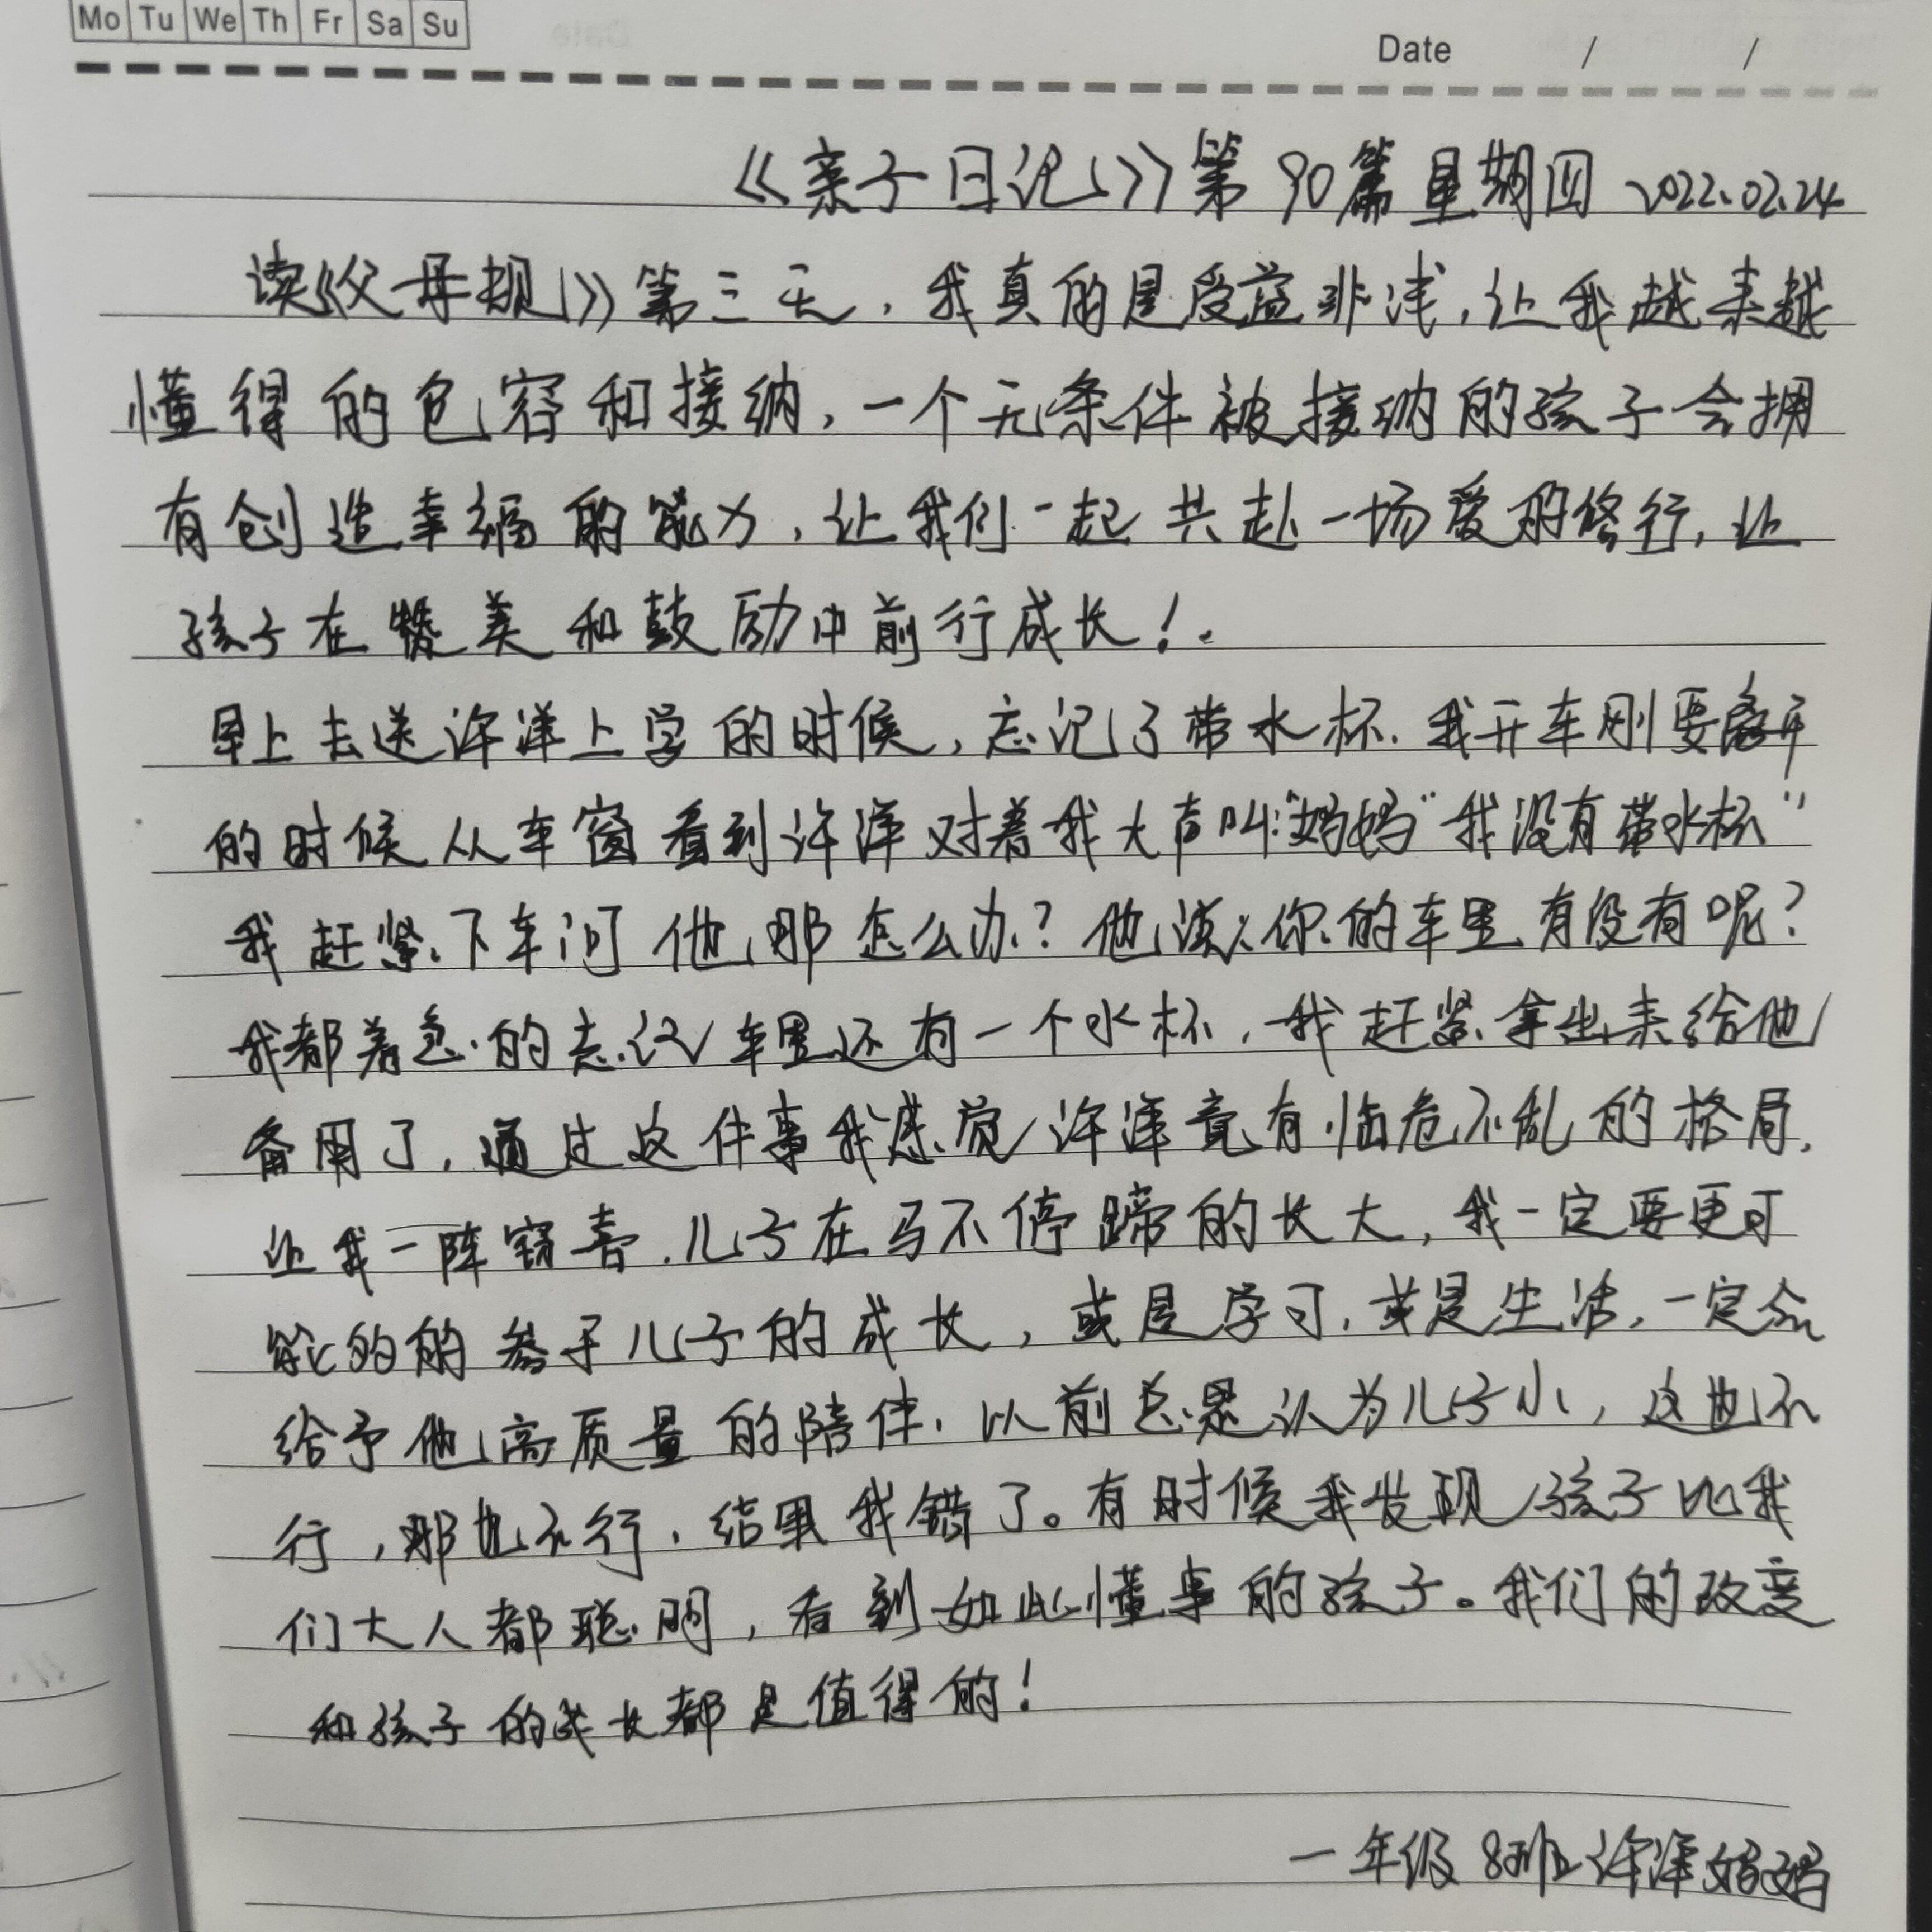 Mo Tu We Th Fr Sa Su
Date / /
《亲子日记》第90篇 星期四 2022.02.24
读《父母规》第三天，我真的是受益非浅，让我越来越
懂得的包容和接纳，一个无条件被接纳的孩子会拥
有创造幸福的能力，让我们一起共赴一场爱的修行，让
孩子在赞美和鼓励中前行成长！.
早上去送许洋上学的时候，忘记了带水杯.我开车刚要离开
的时候从车窗看到许洋对着我大声叫:"妈妈"我没有带水杯"
我赶紧下车问他那怎么办？他淡定你的车里有没有呢？
我都着急的忘记车里还有一个水杯，我赶紧拿出来给他
备用了，通过这件事我感觉许洋竟有临危不乱的格局，
让我一阵窃喜.儿子在马不停蹄的长大，我一定要更可
能的的参于儿子的成长，或是学习，或是生活，一定会
给予他高质量的陪伴.以前总是认为儿子小，这也不
行，那也不行，结果我错了。有时候我发现孩子比我
们大人都聪明，看到如此懂事的孩子。我们的改变
和孩子的成长都是值得的！
一年级8班许洋妈妈